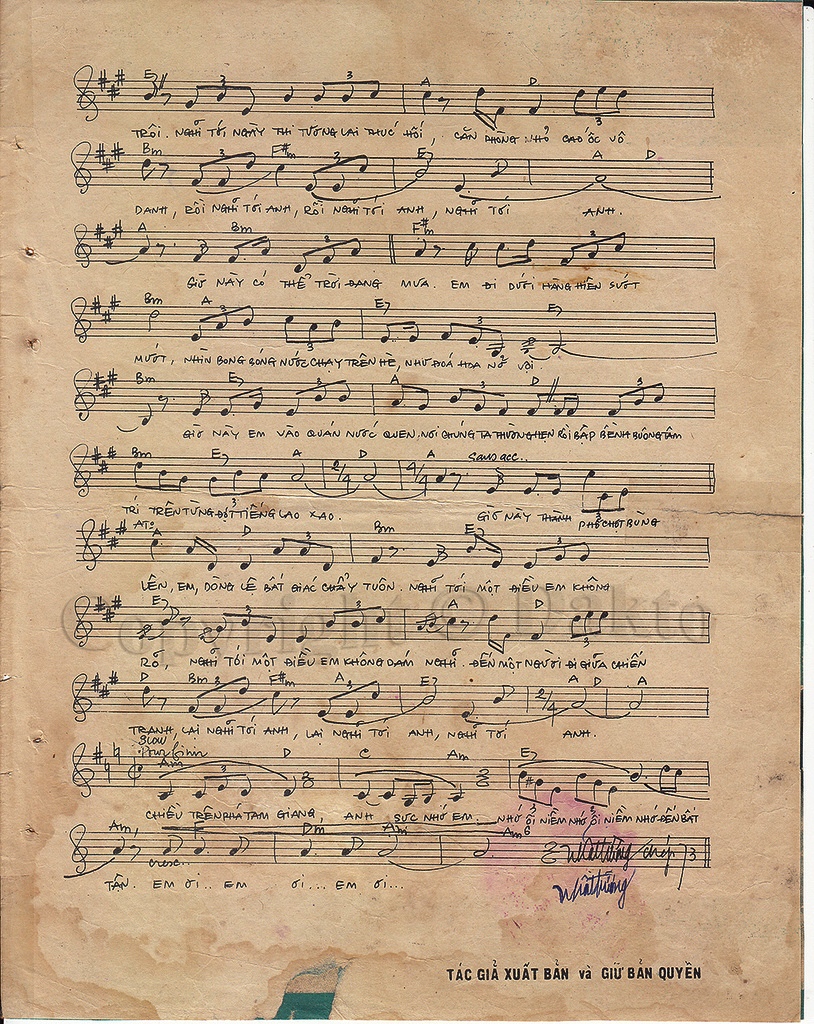 E7 3 3 A D 3
TRÔI. NGHĨ TỚI NGÀY THI TƯƠNG LAI THÚC HỐI, CĂN PHÒNG NHỎ CAO ỐC VÔ
Bm F#m E7 A D
DANH, RỒI NGHĨ TỚI ANH, RỒI NGHĨ TỚI ANH, NGHĨ TỚI ANH.
A Bm F#m
GIỜ NÀY CÓ THỂ TRỜI ĐANG MƯA. EM ĐI DƯỚI HÀNG HIÊN SƯỚT
Bm A 3 E7 3 E7
MƯỚT, NHÌN BONG BÓNG NƯỚC CHẠY TRÊN HÈ, NHƯ ĐOÁ HOA NỞ VỘI.
Bm E7 3 A 3 D 3
GIỜ NÀY EM VÀO QUÁN NƯỚC QUEN, NƠI CHÚNG TA THƯỜNG HẸN RỒI BẬP BỀNH BUÔNG TÂM
Bm E7 3 A 2/4 D 4/4 A sans acc..
TRÍ TRÊN TỪNG ĐỢT TIẾNG LAO XAO. GIỜ NÀY THÀNH PHỐ CHỢT BÙNG
A D 3 Bm E7 3
LÊN, EM, DÒNG LỆ BẤT GIÁC CHẨY TUÔN. NGHĨ TỚI MỘT ĐIỀU EM KHÔNG
E7 3 3 A D 3
RÕ, NGHĨ TỚI MỘT ĐIỀU EM KHÔNG DÁM NGHĨ. ĐẾN MỘT NGƯỜI ĐI GIỮA CHIẾN
D Bm 3 F#m A 3 E7 2/4 A D A
TRANH, LẠI NGHĨ TỚI ANH, LẠI NGHĨ TỚI ANH, NGHĨ TỚI ANH.
Slow
Pour finir
Am 3 D C Am E7
CHIỀU TRÊN PHÁ TAM GIANG, ANH SỰC NHỚ EM. NHỚ ÔI NIỀM NHỚ ÔI NIỀM NHỚ ĐẾN BẤT
Am, Dm Am Am6
cresc..
TẬN. EM ƠI.. EM ƠI... EM ƠI...
Nhật Trường chép 73
Nhật Trường
Copyright © Dakto
TÁC GIẢ XUẤT BẢN và GIỮ BẢN QUYỀN